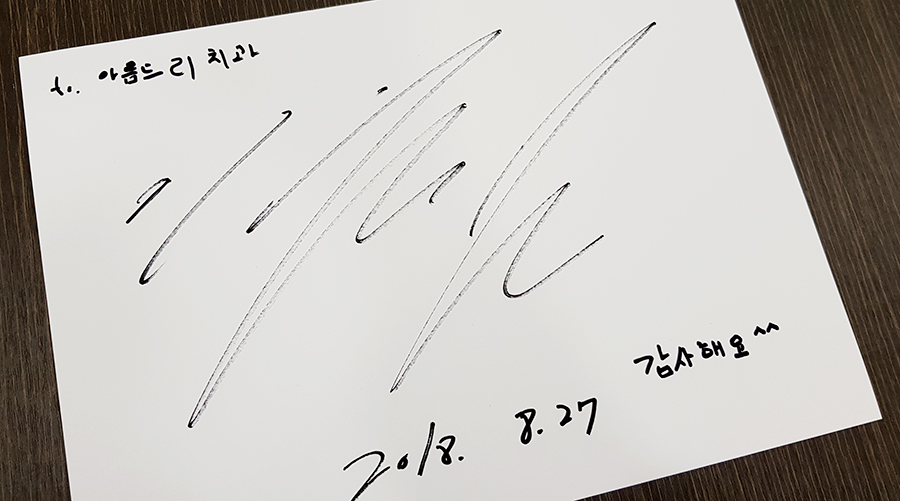 to. 아름드리치과
감사해요^^
2018. 8.27